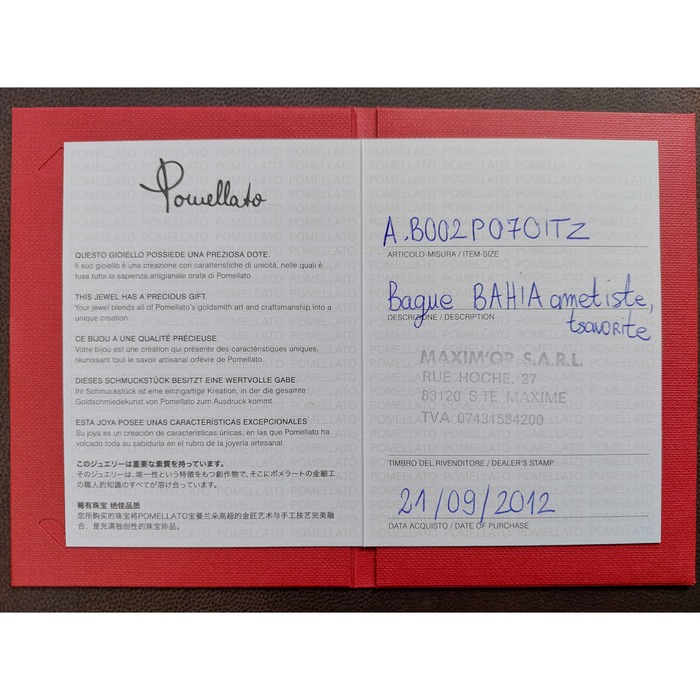 Pomellato
QUESTO GIOIELLO POSSIEDE UNA PREZIOSA DOTE.
Il suo gioiello è una creazione con caratteristiche di unicità, nelle quali è
fusa tutta la sapienza artigianale orafa di Pomellato.
THIS JEWEL HAS A PRECIOUS GIFT.
Your jewel blends all of Pomellato's goldsmith art and craftsmanship into a
unique creation.
CE BIJOU A UNE QUALITÉ PRÉCIEUSE.
Votre bijou est une création qui présente des caractéristiques uniques,
réunissant tout le savoir artisanal orfèvre de Pomellato.
DIESES SCHMUCKSTÜCK BESITZT EINE WERTVOLLE GABE.
Ihr Schmuckstück ist eine einzigartige Kreation, in der die gesamte
Goldschmiedekunst von Pomellato zum Ausdruck kommt.
ESTA JOYA POSEE UNAS CARACTERÍSTICAS EXCEPCIONALES
Su joya es un creación de características únicas, en las que Pomellato ha
volcado toda su sabiduría en el rubro de la joyería artesanal.
このジュエリーは重要な素質を持っています。
そのジュエリーは、唯一性という特徴をもつ創作物で、そこにポメラートの金細工
の職人的知識のすべてが溶け合っています。
稀有珠宝 绝佳品质
您所购买的珠宝将POMELLATO宝曼兰朵高超的金匠艺术与手工技艺完美融
合，是充满独创性的珠宝珍品。
A.B002PO7OITZ
ARTICOLO-MISURA / ITEM-SIZE
Bague BAHIA ametiste,
tsavorite
DESCRIZIONE / DESCRIPTION
MAXIM'OR S.A.R.L.
RUE HOCHE, 27
83120 S.TE MAXIME
TVA 07431584200
TIMBRO DEL RIVENDITORE / DEALER'S STAMP
21/09/2012
DATA ACQUISTO / DATE OF PURCHASE